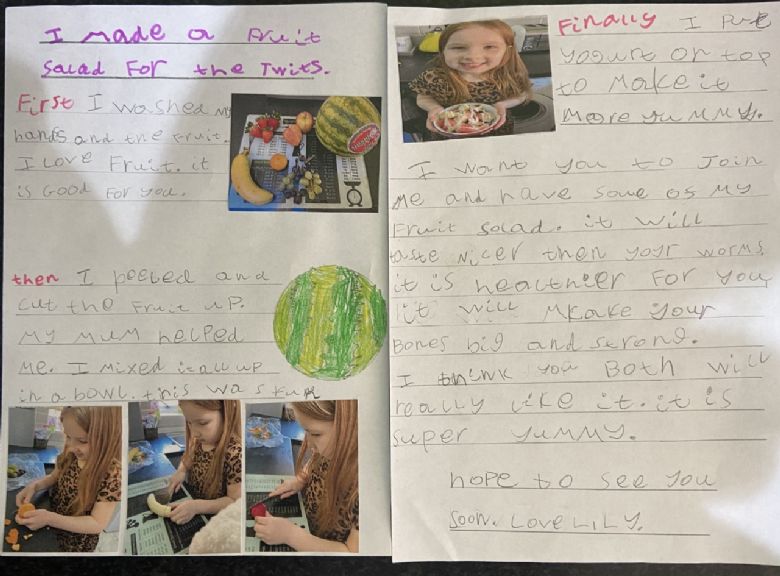 I made a Fruit
Salad For the Twits.
First I washed my
hands and the Fruit.
I Love Fruit. it
is Good For you.
then I peeled and
cut the Fruit up.
My Mum helped
Me. I Mixed it all up
in a bowl. this was Fun
Finally I Put
yogurt on top
to Make it
More yuMMy.
I want you to Join
Me and have some of My
Fruit Salad. it will
taste Nicer then your worms.
it is healthier For you
it will Make your
Bones big and strong.
I think you Both will
really Like it. it is
super yuMMy.
hope to see you
soon. Love LiLy.